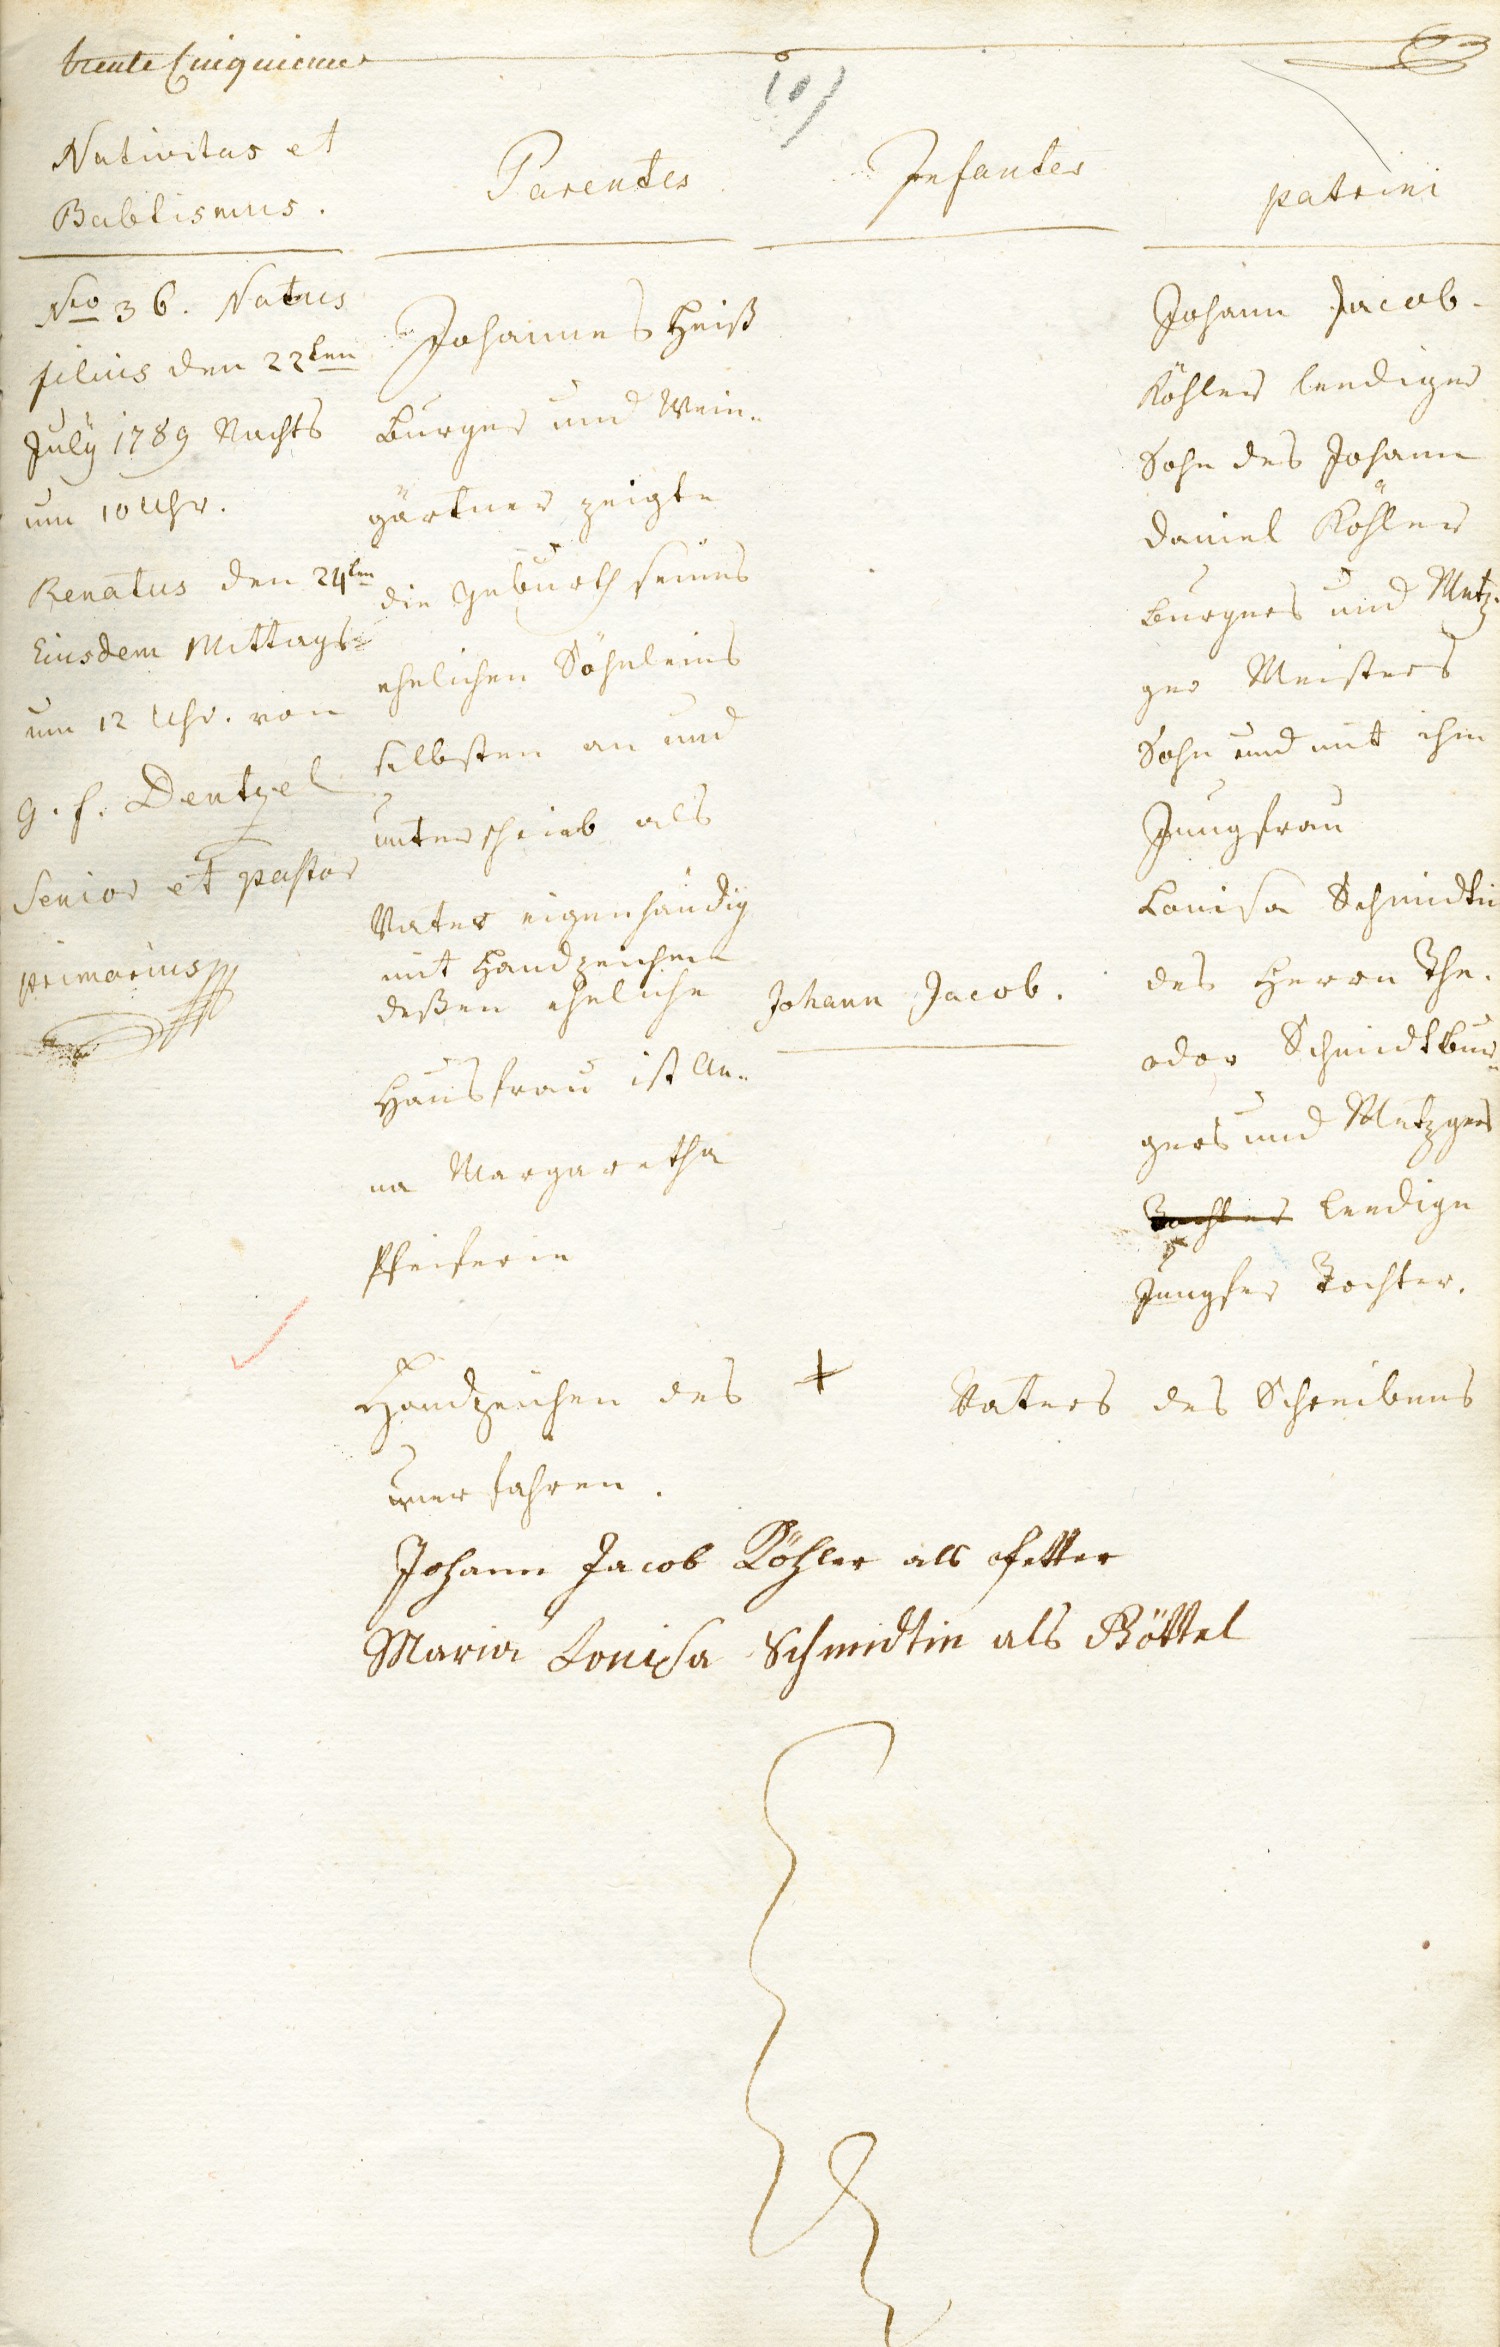 trente Cinquieme
101
Nativitas et
Babtismus.
Parentes
Infantes
patrini
Nro 36. Natus
filius den 22ten
July 1789 Nachts
um 10 Uhr.
Renatus den 24ten
Eiusdem Mittags
um 12 Uhr. von
G. f. Dentzel
Senior et pastor
primarius
Johannes Heiß
Burger und Wein-
gärtner zeigte
die Geburth seines
ehelichen Söhnleins
selbsten an und
unterschrieb als
Vater eigenhändig
mit Handzeichen
deßen eheliche
Hausfrau ist An-
na Margaretha
Pfeiferin
Johann Jacob.
Johann Jacob
Köhler leediger
Sohn des Johann
Daniel Köhler
Burgers und Metz-
ger Meisters
Sohn und mit ihm
Jungfrau
Louisa Schmidtin
des Herrn The-
odor Schmidt Bur-
gers und Metzgers
Tochter leedige
Jungfer Tochter.
Handzeichen des + Vaters des Schreibens
unerfahren.
Johann Jacob Köhler als Pfetter
Maria Louisa Schmidtin als Göttel